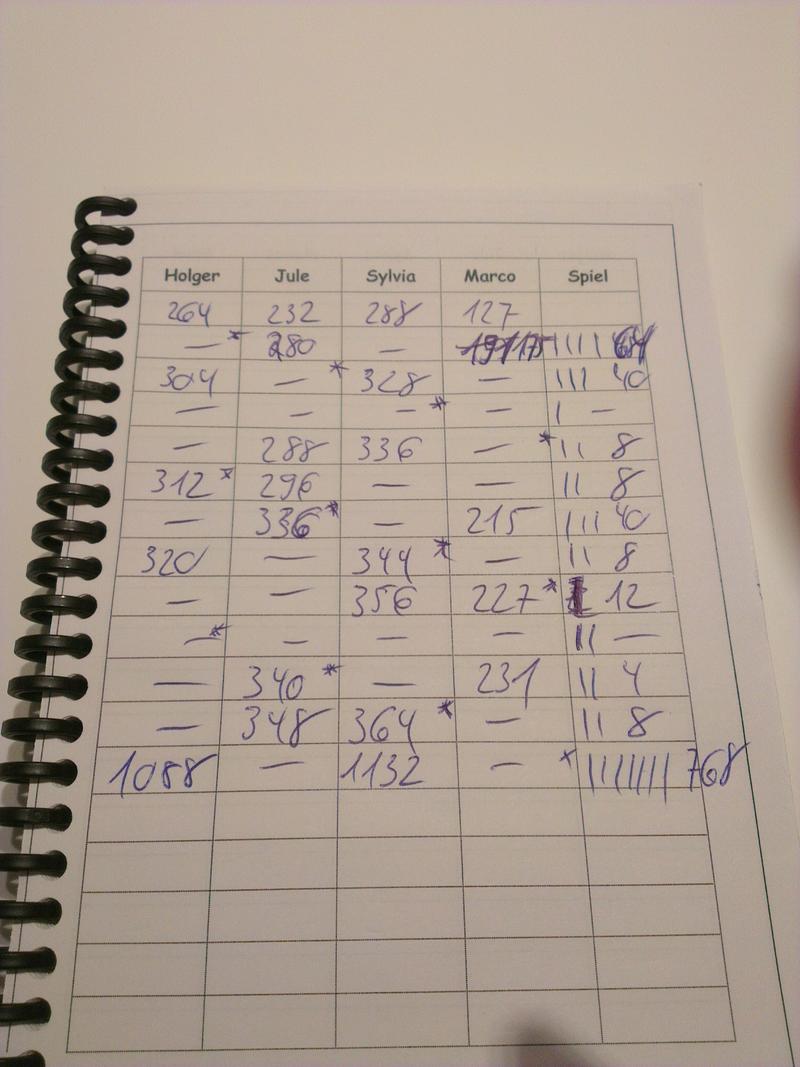 Holger Jule Sylvia Marco Spiel
264 232 288 127
— * 280 — |||| 
304 — * 328 — ||| 40
— — — * — | —
— 288 336 — * || 8
312 * 296 — — || 8
— 336 * — 215 ||| 40
320 — 344 * — || 8
— — 356 227 * 12
— * — — — || —
— 340 * — 231 || 4
— 348 364 * — || 8
1088 — 1132 — * |||||||| 768